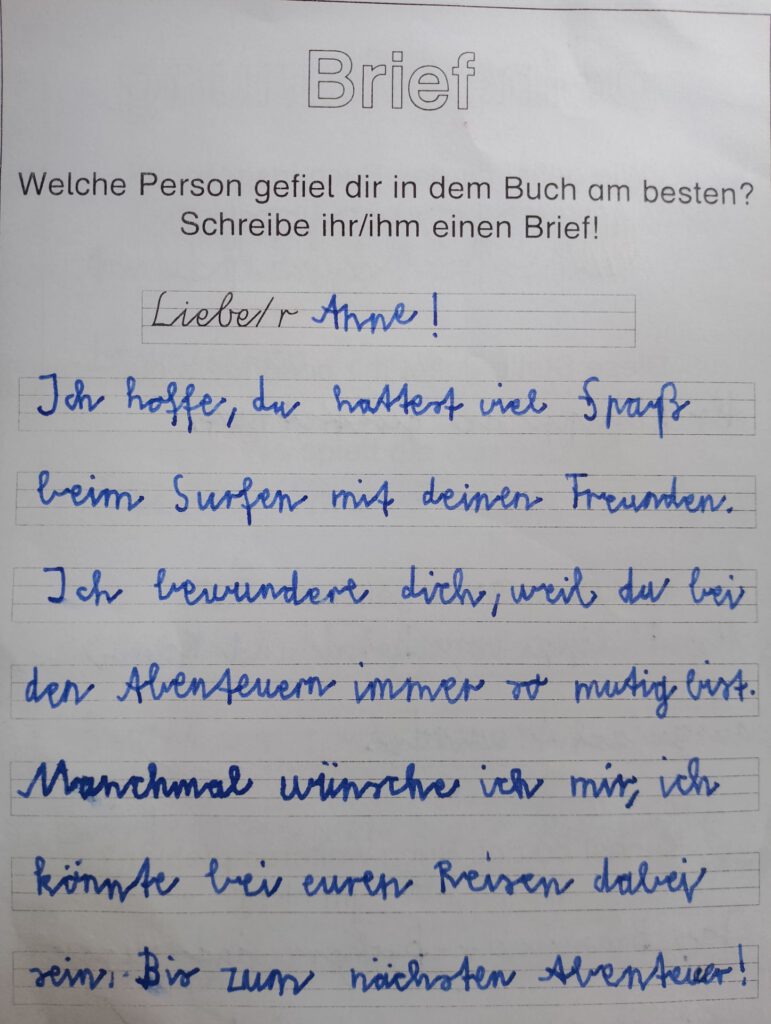 Brief
Welche Person gefiel dir in dem Buch am besten?
Schreibe ihr/ihm einen Brief!
Liebe/r Anne!
Ich hoffe, du hattest viel Spaß
beim Surfen mit deinen Freunden.
Ich bewundere dich, weil du bei
den Abenteuern immer so mutig bist.
Manchmal wünsche ich mir, ich
könnte bei euren Reisen dabei
sein. Bis zum nächsten Abenteuer!